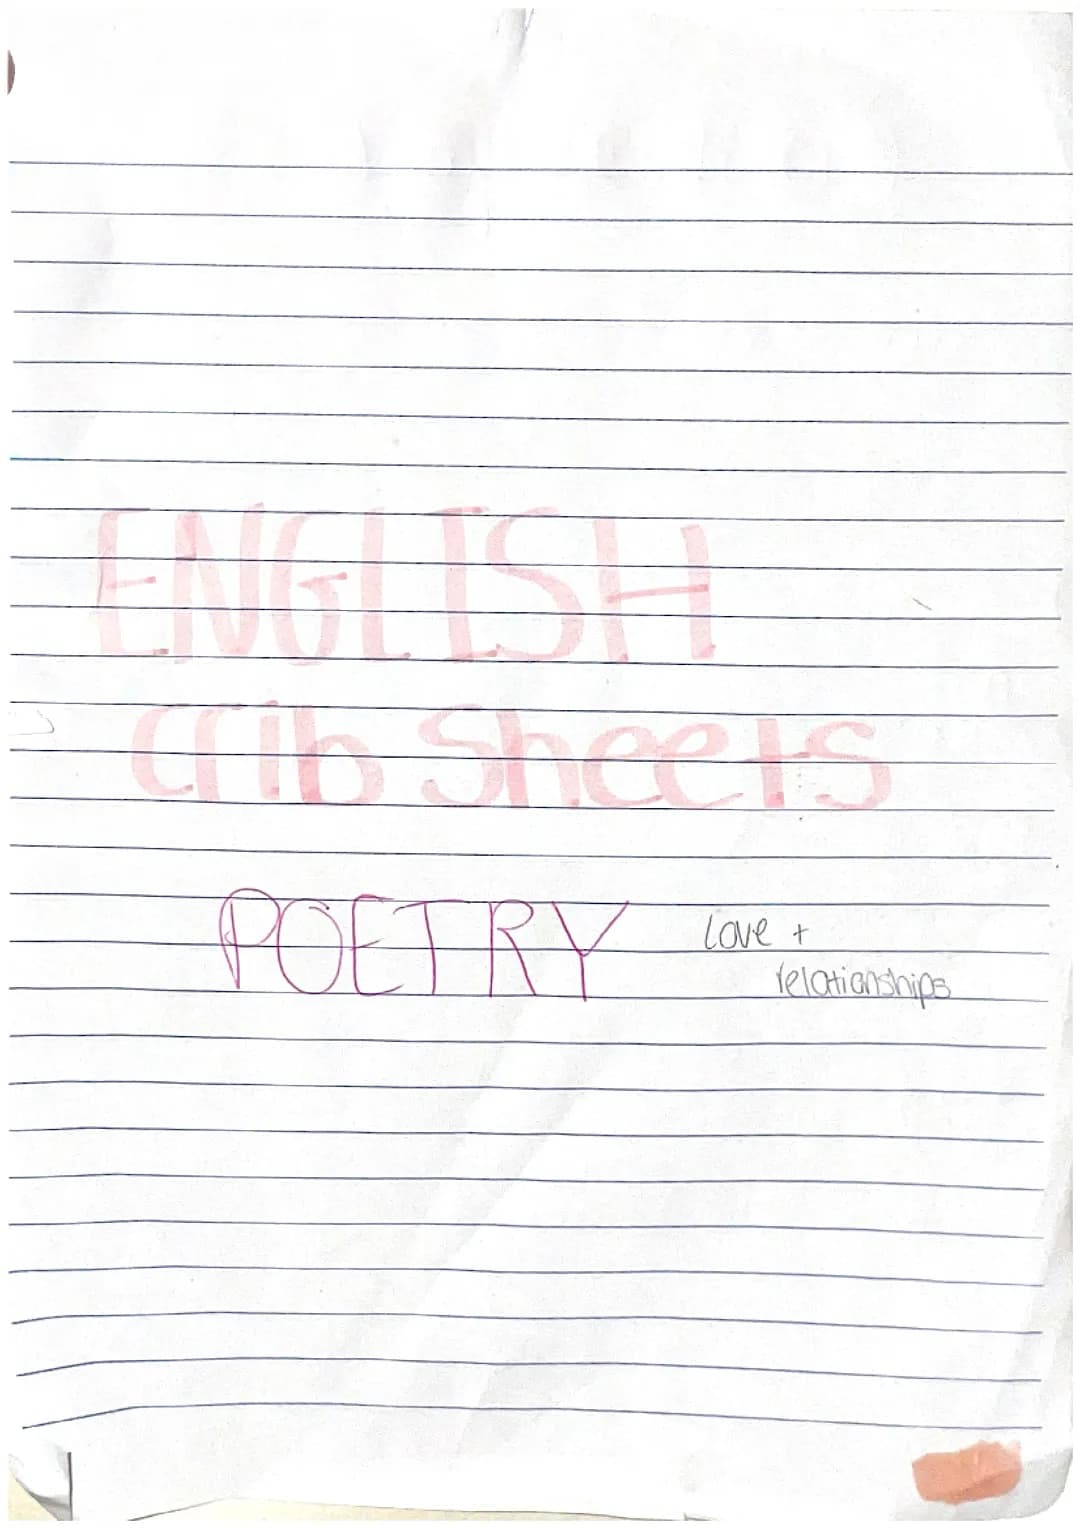 ENGLISH
crib sheets
POETRY
love +
relationships